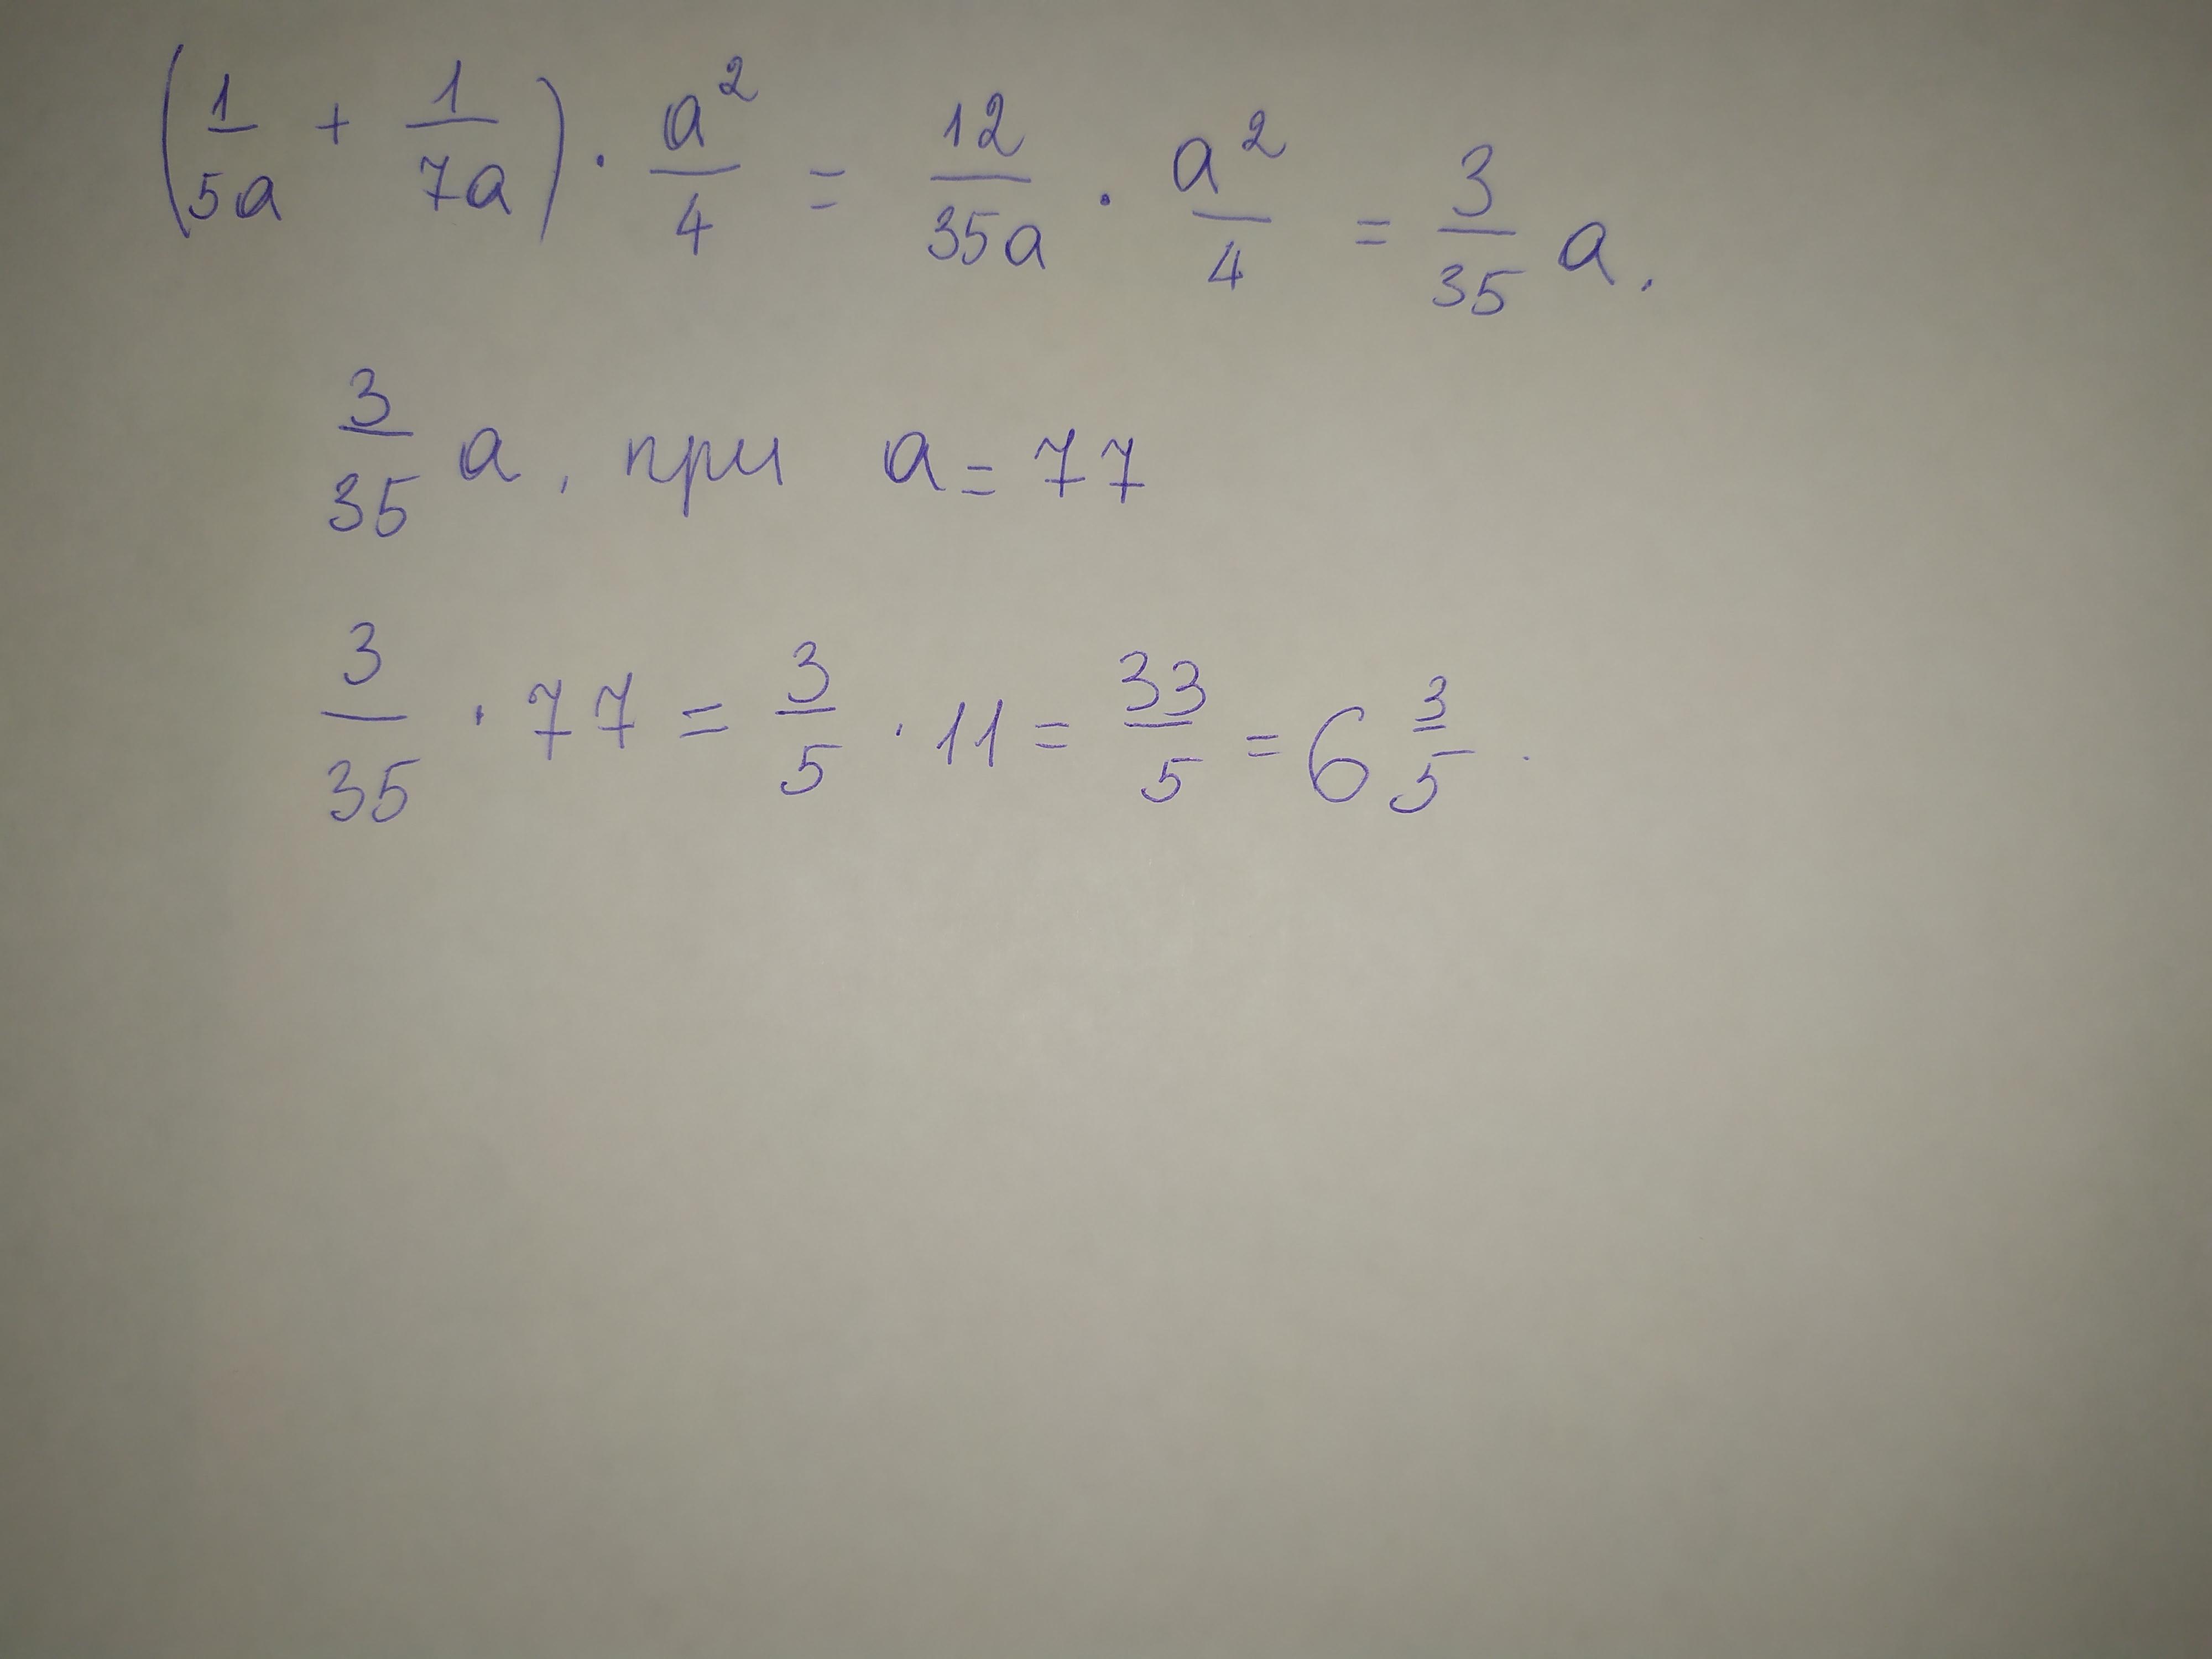 (1/5a + 1/7a) · a²/4 = 12/35a · a²/4 = 3/35 a.
3/35 a, при a = 77
3/35 · 77 = 3/5 · 11 = 33/5 = 6 3/5.